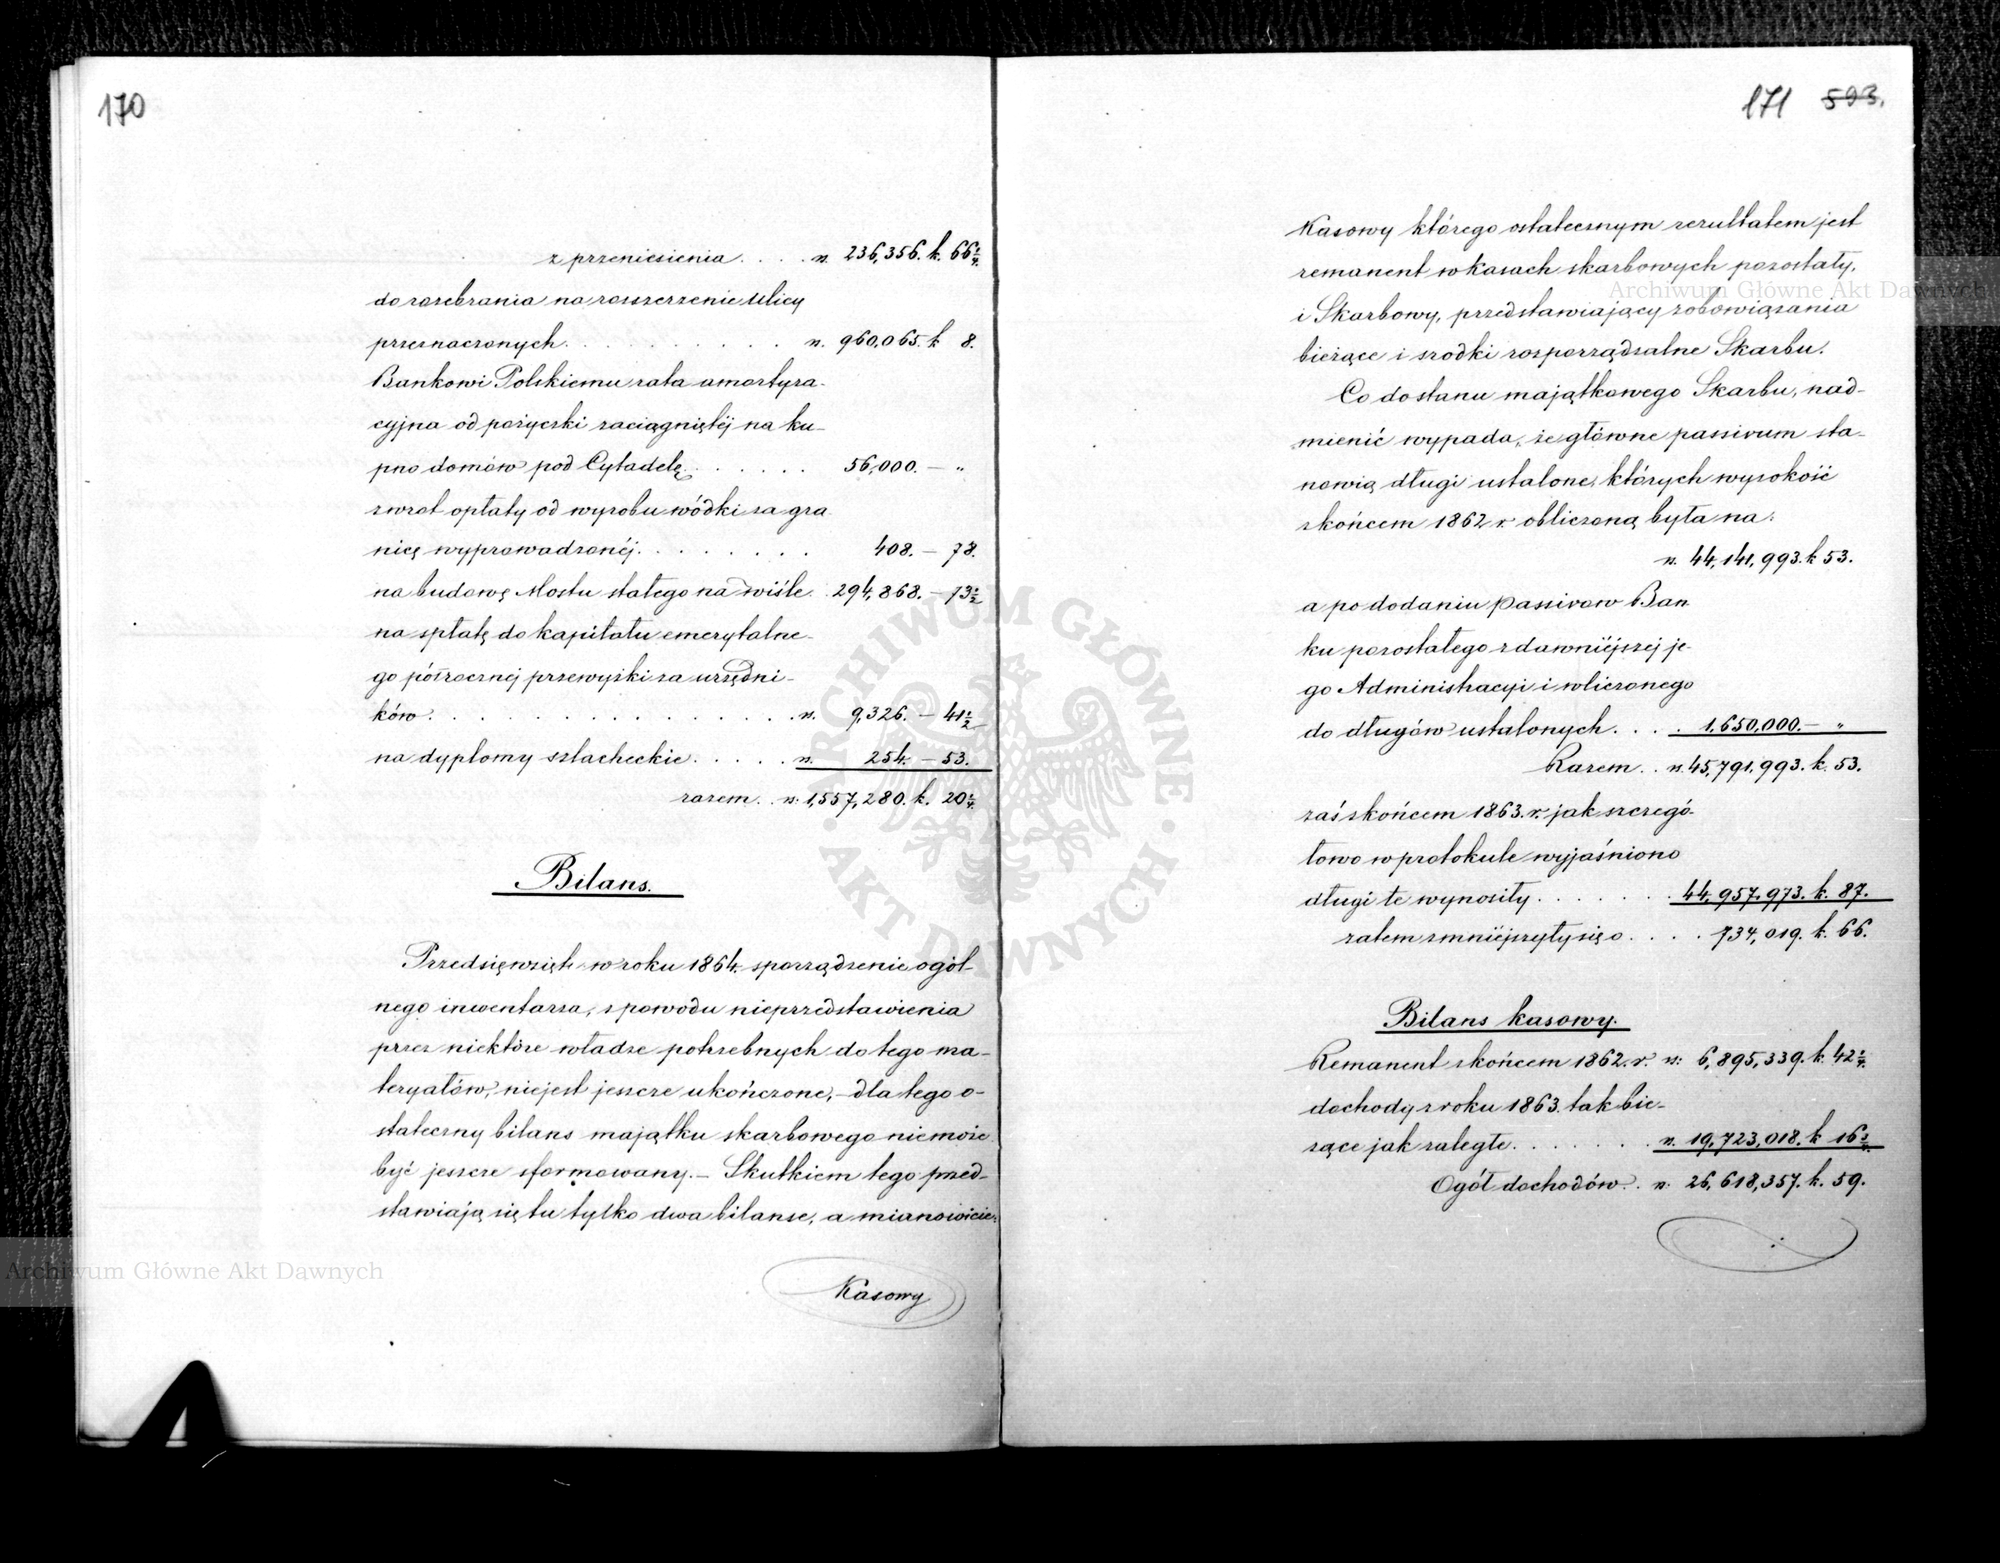 170
z przeniesienia . . . . rs. 236,356. k. 66 1/4.
do rozebrania na rozszerzenie ulicy
przeznaczonych . . . . . . . . . . rs. 960,065. k 8.
Bankowi Polskiemu rata amortyza-
cyjna od pożyczki zaciągniętéj na ku-
pno domów pod Cytadelę . . . . . . 56,000. — „
zwrot opłaty od wyrobu wódki za gra
nicę wyprowadzonéj . . . . . . . 408. — 78.
na budowę Mostu stałego na wiśle. 294,868. — 73 1/2
na spłatę do kapitału emerytalne-
go półrocznej przewyżki za urzędni-
ków . . . . . . . . . . . . . . . rs. 9,326. — 41 1/2
na dyplomy szlacheckie . . . . . rs. 254. — 53.
razem . . rs. 1,557,280. k. 20 1/4.
Bilans.
Przedsięwzięte w roku 1864. sporządzenie ogól-
nego inwentarza, z powodu nieprzedstawienia
przez niektóre władze potrzebnych do tego ma-
teryałów, niejest jeszcze ukończone, — dla tego o-
stateczny bilans majątku skarbowego niemoże
być jeszcze sformowany. — Skutkiem tego przed-
stawiają się tu tylko dwa bilanse, a mianowicie:
Kasowy
171 593.
Kasowy którego ostatecznym rezultatem jest
remanent w kasach skarbowych pozostały,
i Skarbowy, przedstawiający zobowiązania
bieżące i srodki rozporządzalne Skarbu.
Co do stanu majątkowego Skarbu, nad-
mienić wypada, że główne passivum sta-
nowią długi ustalone, których wysokość
z końcem 1862 r. obliczoną była na:
rs. 44,141,993. k 53.
a po dodaniu passivow Ban
ku pozostałego z dawniéjszej je-
go Administracyi i wliczonego
do długów ustalonych . . . . 1,650,000. — „
Razem . . rs. 45,791,993. k. 53.
zaś z końcem 1863. r. jak szczegó-
łowo w protokule wyjaśniono
długi te wynosiły . . . . . . . 44,957,973. k. 87.
zatem zmniéjszyły się o . . . . 734,019. k. 66.
Bilans kasowy.
Remanent z końcem 1862. r. rs: 6,895,339. k. 42 3/4.
dochody z roku 1863. tak bie-
żące jak zaległe . . . . . . . rs. 19,723,018. k 16 1/4.
Ogół dochodów . . rs. 26,618,357. k. 59.
Archiwum Główne Akt Dawnych
Archiwum Główne Akt Dawnych
ARCHIWUM GŁÓWNE · AKT DAWNYCH ·